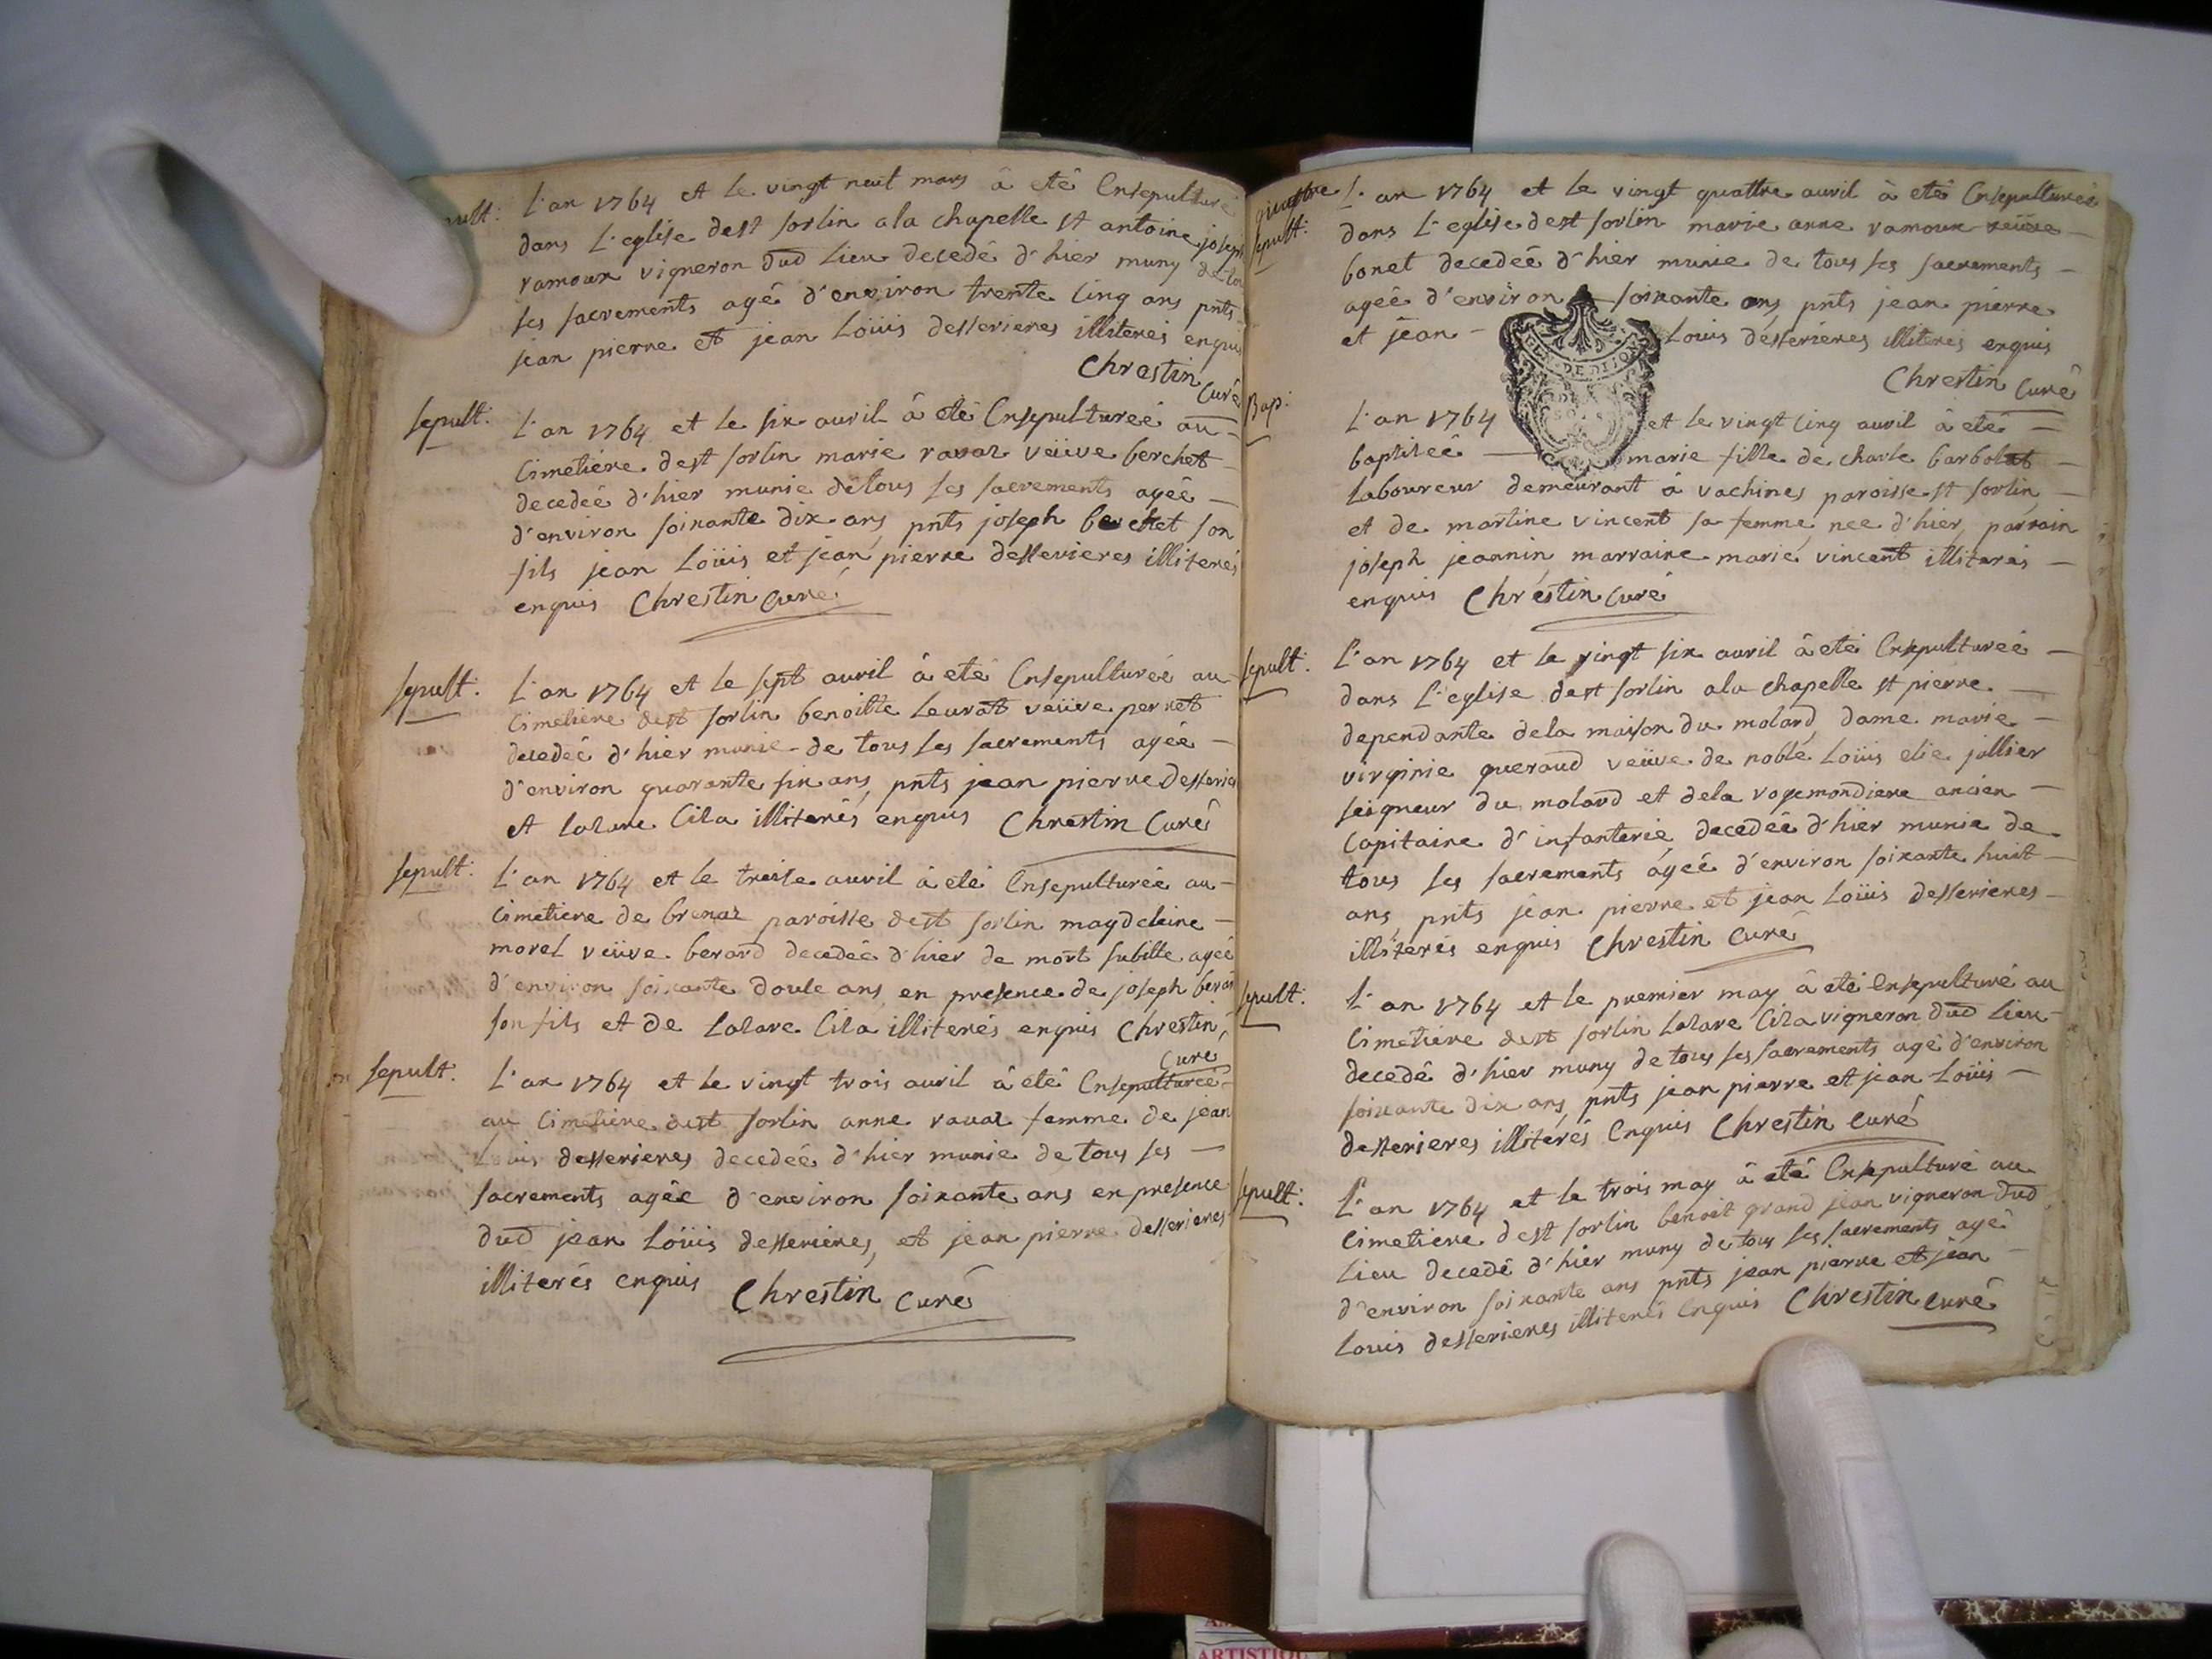 sepult: L'an 1764 et le vingt neuf mars à eté Ensepulturé
dans L'eglise dest sorlin ala chapelle st antoine joseph
ramoux vigneron dud Lieu decedé d'hier muny de tou
ses sacrements agé d'environ trente cinq ans pnts
jean pierre et jean Loüis desserieres illiterés enquis
Chrestin Curé
sepult: L'an 1764 et le six avril à eté Ensepulturéé au
Cimetiere dest sorlin marie ravaz veüve berchet
decedéé d'hier munie de tous ses sacrements agéé
d'environ soixante dix ans, pnts joseph berchet son
fils jean Loüis et jean pierre desserieres illiterés
enquis Chrestin Curé
sepult: L'an 1764 et le sept avril à eté Ensepulturéé au
Cimetiere dest sorlin benoitte Leurat veüve perret
decedéé d'hier munie de tous ses sacrements agéé
d'environ quarante six ans, pnts jean pierre desserie
et Lazare Cila illiterés enquis Chrestin Curé
sepult: L'an 1764 et le treize avril à eté Ensepulturéé au
Cimetiere de brenaz paroisse dest sorlin magdelaine
morel veüve berard decedéé d'hier de mort subitte agéé
d'environ soixante douze ans en presence de joseph berar
son fils et de Lazare Cila illiterés enquis Chrestin
Curé
sepult. L'an 1764 et le vingt trois avril à eté Ensepulturéé
au Cimetiere dest sorlin anne ravaz femme de jean
Loüis desserieres decedéé d'hier munie de tous ses
sacrements agéé d'environ soixante ans en presence
dud jean Loüis desserieres, et jean pierre desserieres
illiterés enquis Chrestin Curé
quattre L'an 1764 et le vingt quattre avril à eté Ensepulturéé
sepult: dans L'eglise dest sorlin marie anne ramoux veüve
bonet decedéé d'hier munie de tous ses sacrements
agéé d'environ soixante ans, pnts jean pierre
et jean Louis desserieres illiterés enquis
Chrestin Curé
GEN DE DIJON
Bap: L'an 1764 et le vingt cinq avril à eté
baptiséé marie fille de charle barbolat
Laboureur demeurant à vachines paroisse st sorlin
et de martine vincent sa femme, nee d'hier, parrain
joseph jeannin, marraine marie vincent illiterés
enquis Chrestin Curé
sepult: L'an 1764 et le vingt six avril à eté Ensepulturéé
dans L'eglise dest sorlin ala chapelle st pierre
dependante dela maison du molard, dame marie
virginie queraud veüve de noble Loüis elie jallier
seigneur du molard et dela vogemondiere ancien
Capitaine d'infanterie, decedéé d'hier munie de
tous ses sacrements agéé d'environ soixante huit
ans, pnts jean pierre et jean Loüis desserieres
illiterés enquis Chrestin Curé
sepult: L'an 1764 et le premier may à eté Ensepulturé au
Cimetiere dest sorlin Lazare Cila vigneron dud Lieu
decedé d'hier muny de tous ses sacrements agé d'environ
soixante dix ans, pnts jean pierre et jean Loüis
desserieres illiterés Enquis Chrestin Curé
sepult: L'an 1764 et le trois may à eté Ensepulturé au
Cimetiere dest sorlin benoit grand jean vigneron dud
Lieu decedé d'hier muny de tous ses sacrements agé
d'environ soixante ans pnts jean pierre et jean
Louis desserieres illiterés Enquis Chrestin Curé
ARTISTIQU